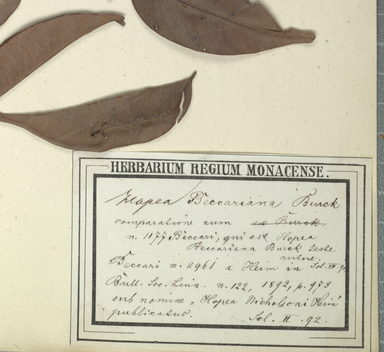 HERBARIUM REGIUM MONACENSE.
Hopea Beccariana Burck
comparatione cum Burck
n. 1177 Beccari, qui est Hopea
Beccariana Burck teste
Beccari n. 2961 a Heim in
Bull. Soc. Linn. n. 122, 1892, p. 973
sub nomine „Hopea Nicholsoni Heim"
publicatus.
Sol. II. 92.